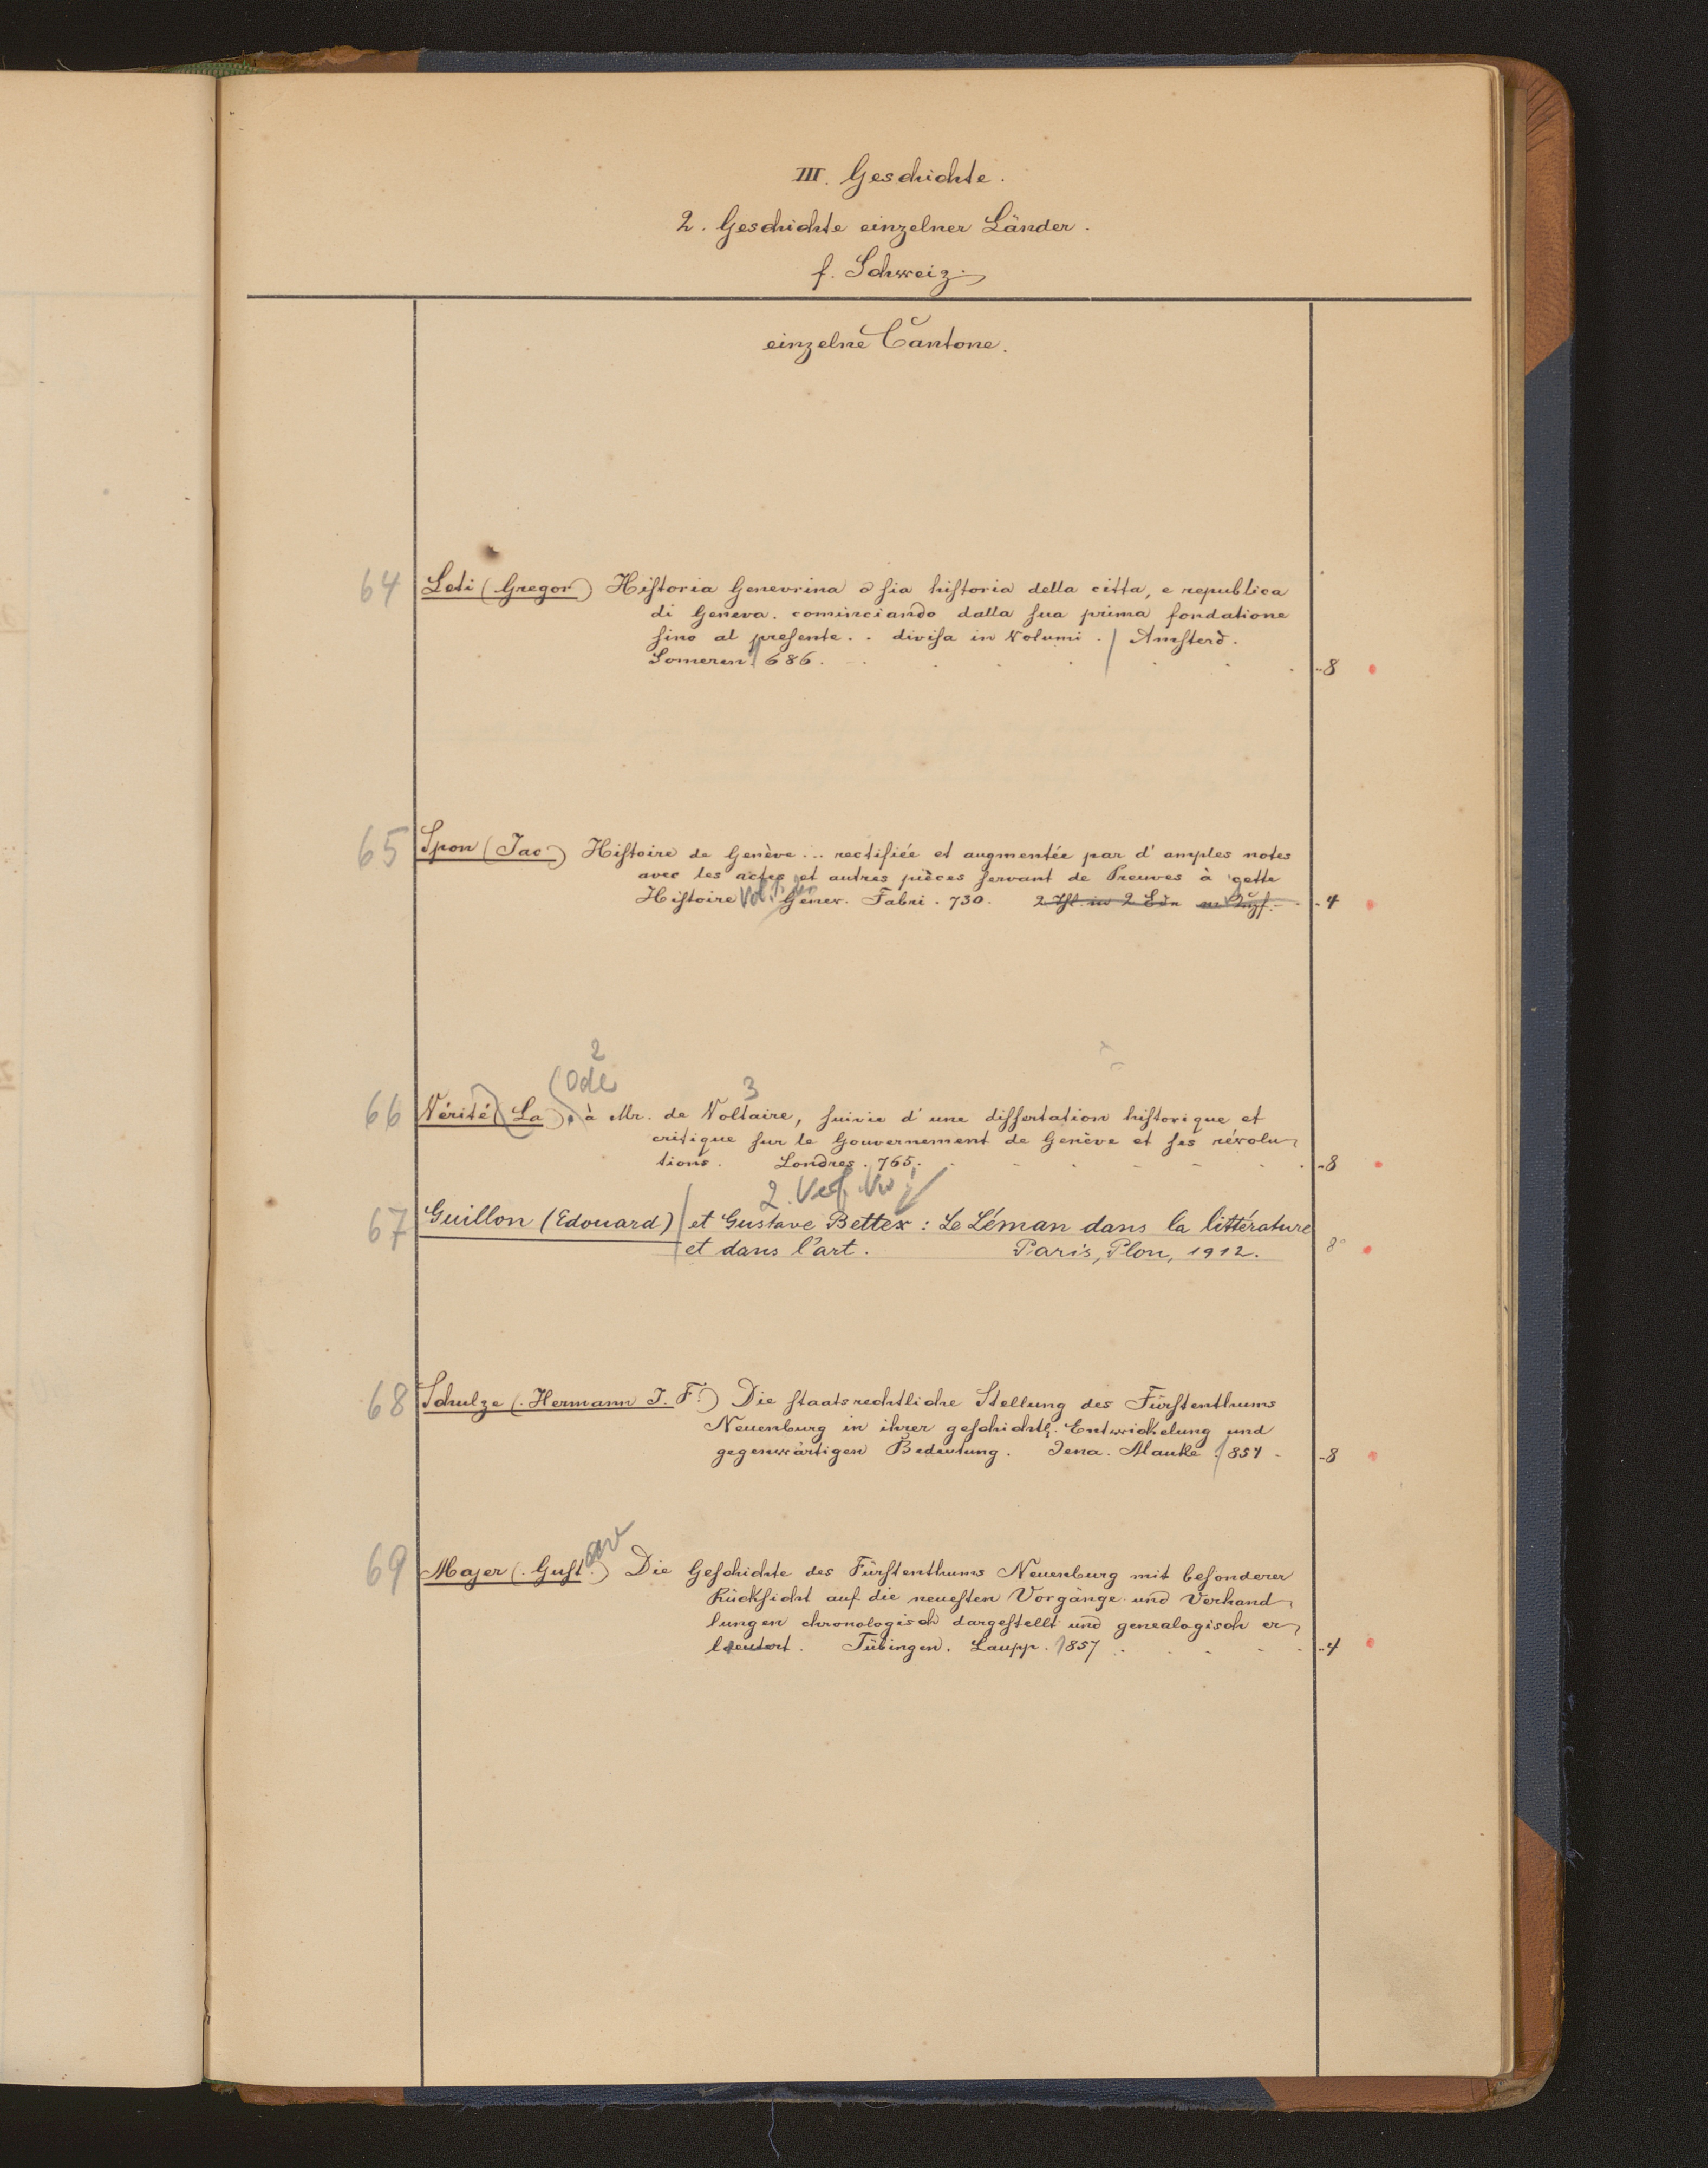 III. Geschichte.
2. Geschichte einzelner Länder.
f. Schweiz.
einzelne Cantone.
64 Leti (Gregor) Hiſtoria Genevrina ò ſia hiſtoria della citta, e republica
di Geneva. cominciando dalla ſua prima fondatione
ſino al preſente.. diviſa in Volumi. / Amſterd.
Someren. 1686. -8
65 Spon (Jac.) Hiſtoire de Genève... rectifiée et augmentée par d'amples notes
avec les actes et autres pièces ſervant de Preuves à cette
Hiſtoire Vol. Genev. Fabri. 730. -4
2
(Ode 3
66 Vérité (La), à Mr. de Voltaire, ſuivie d'une diſſertation hiſtorique et
critique ſur le Gouvernement de Genève et ſes révolu-
tions. Londres. 765. -8
2. Verf.
67 Guillon (Edouard) / et Gustave Bettex: Le Léman dans la littérature
et dans l'art. Paris, Plon, 1912. 8°
68 Schulze (Hermann J. F.) Die ſtaatsrechtliche Stellung des Fürſtenthums
Neuenburg in ihrer geſchichtl. Entwickelung und
gegenwärtigen Bedeutung. Jena. Mauke. 1857 -8
69 Majer (Guſt. av) Die Geſchichte des Fürſtenthums Neuenburg mit beſonderer
Rückſicht auf die neueſten Vorgänge und Verhand-
lungen chronologisch dargeſtellt und genealogisch er-
läutert. Tübingen. Laupp. 1857 -4